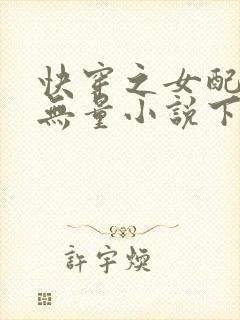 快穿之女配
無量小說下
許宇煥